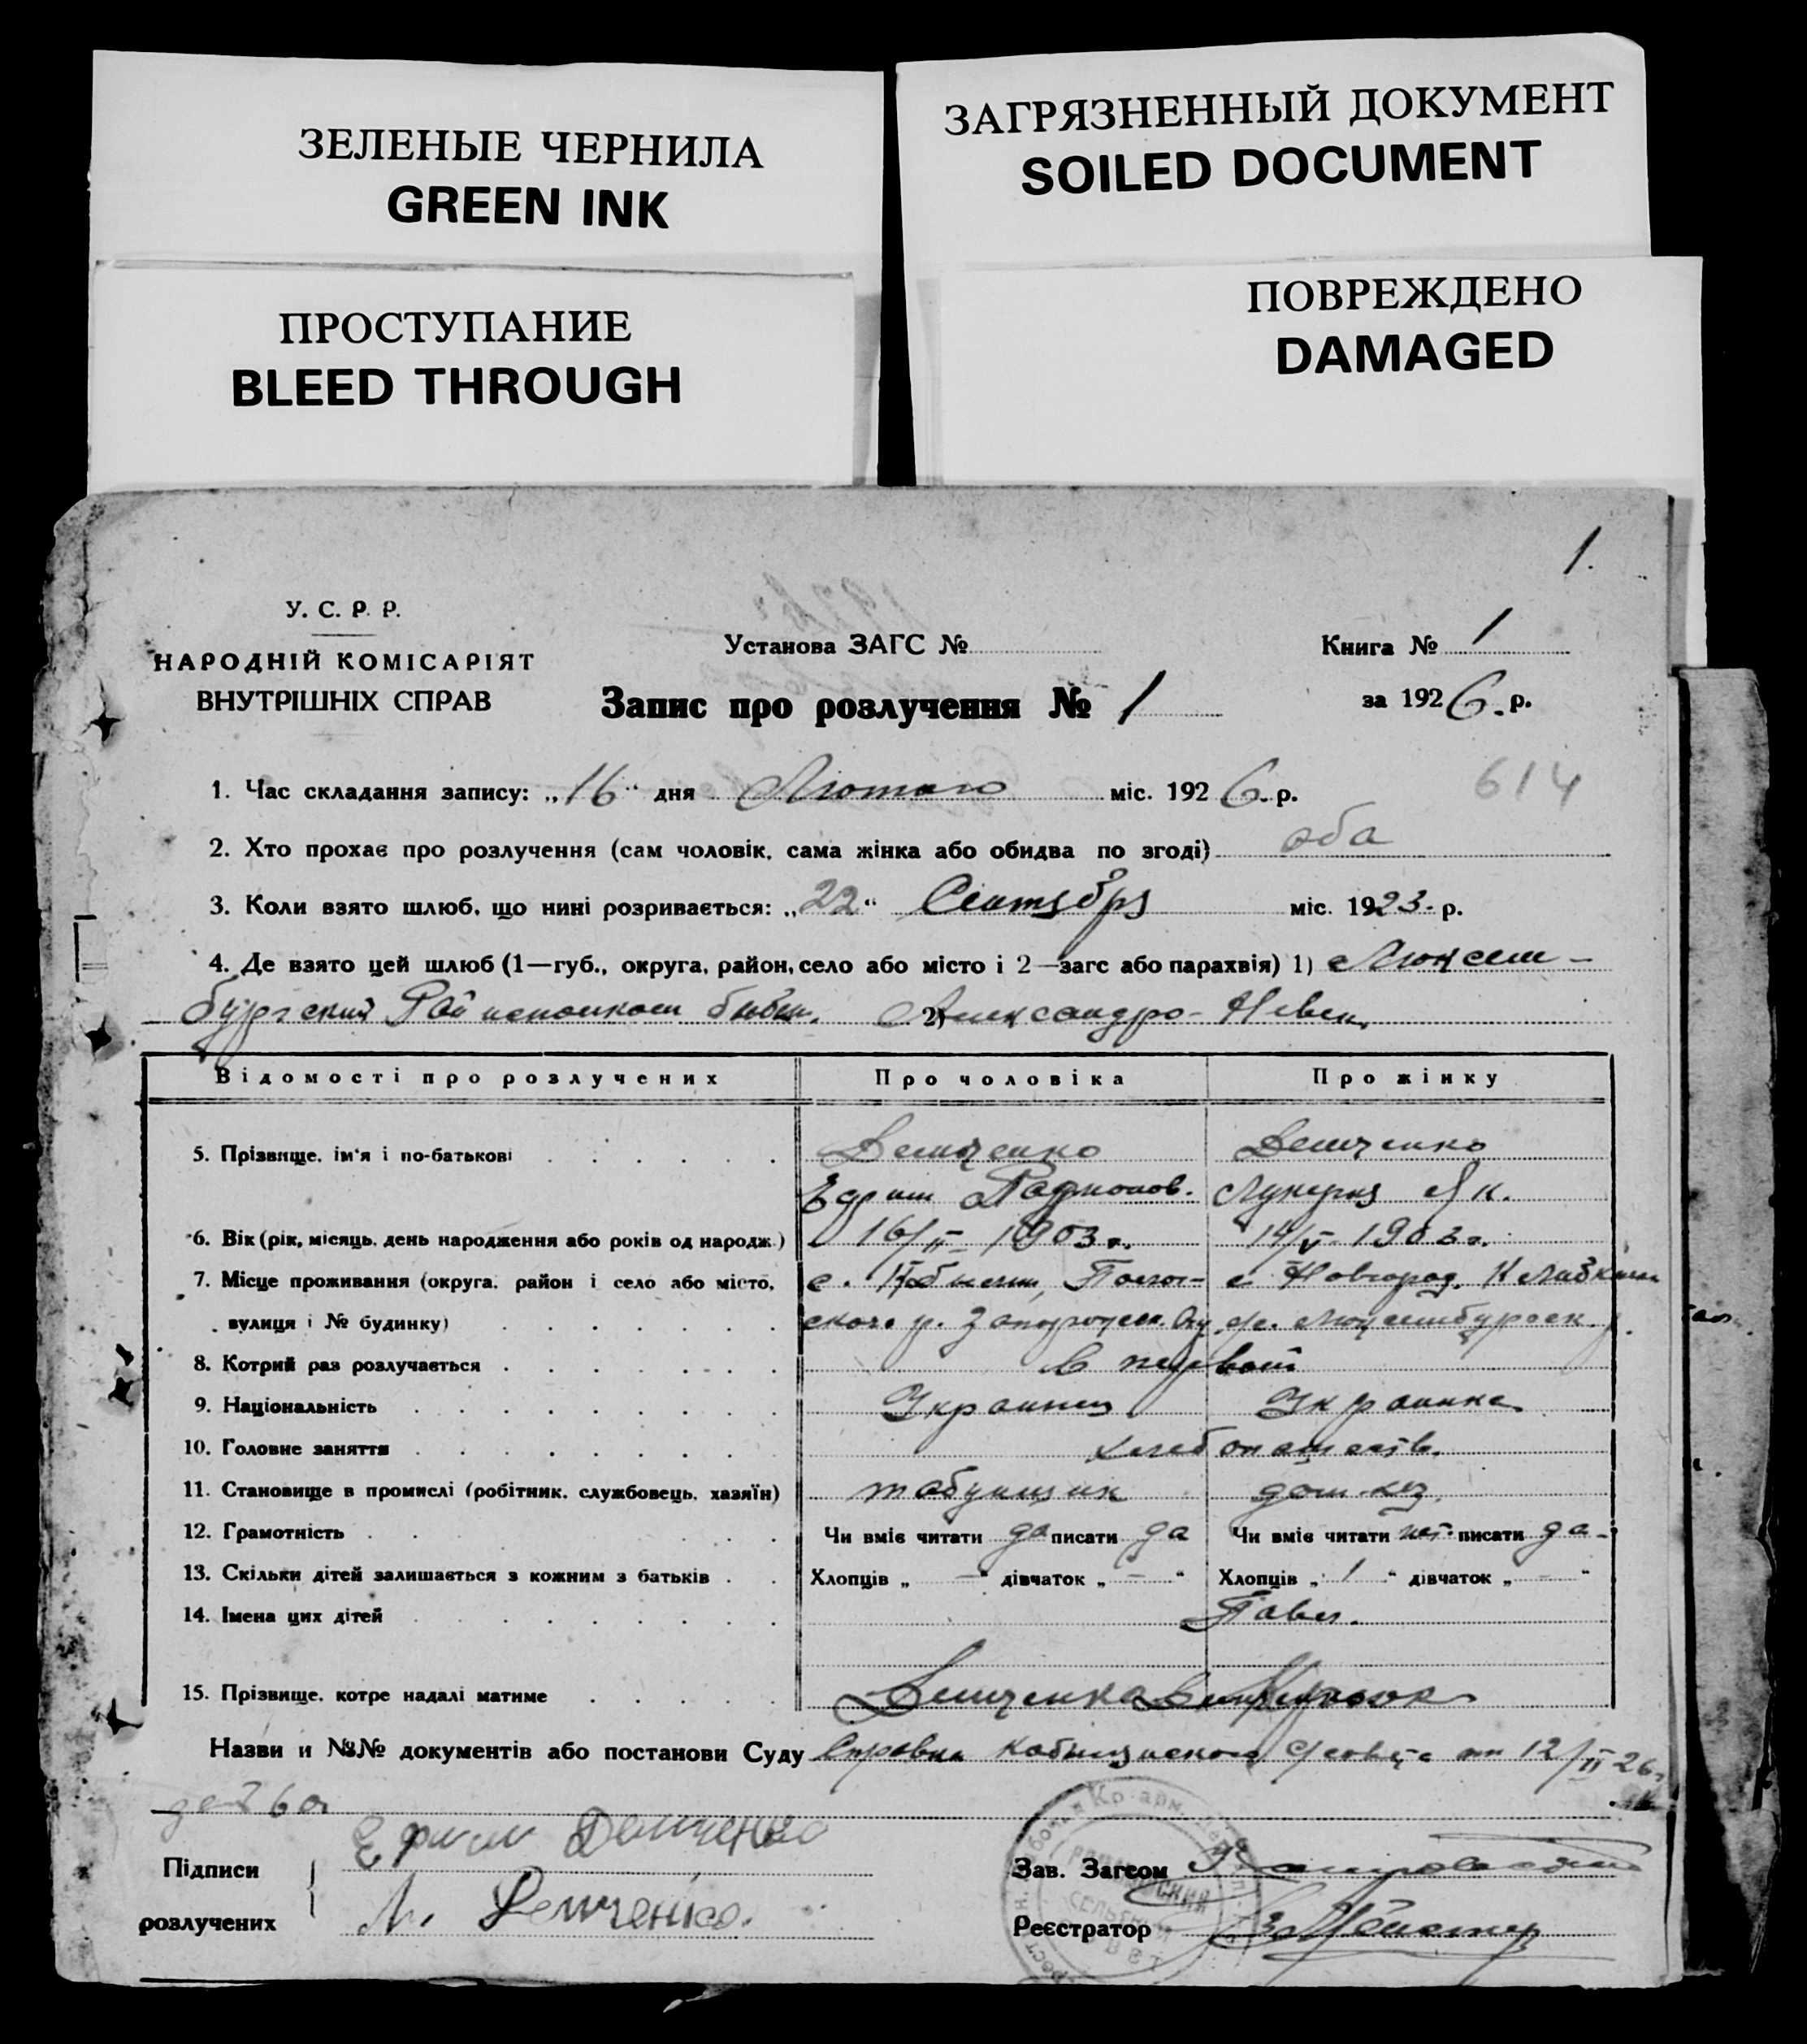 ЗЕЛЕНЫЕ ЧЕРНИЛА
GREEN INK
ЗАГРЯЗНЕННЫЙ ДОКУМЕНТ
SOILED DOCUMENT
ПРОСТУПАНИЕ
BLEED THROUGH
ПОВРЕЖДЕНО
DAMAGED
1.
У. С. Р. Р.
НАРОДНІЙ КОМІСАРІЯТ
ВНУТРІШНІХ СПРАВ
Установа ЗАГС №
Книга № 1
Запис про розлучення № 1
за 1926. р.
1. Час складання запису: „16“ дня Лютого міс. 1926. р.
614
2. Хто прохає про розлучення (сам чоловік, сама жінка або обидва по згоді) оба
3. Коли взято шлюб, що нині розривається: „22“ Сентября міс. 1923. р.
4. Де взято цей шлюб (1—губ., округа, район, село або місто і 2—загс або парахвія) 1) Люксем-
бургский Райисполком бывш. 2) Александро-Невск.
Відомості про розлучених Про чоловіка Про жінку
5. Прізвище, ім'я і по-батькові Демченко Демченко
Ефим Лукерия Як.
6. Вік (рік, місяць, день народження або років од народж.) 16/II 1903 г. 14/V 1903 г.
7. Місце проживання (округа, район і село або місто, с. Полог- с Новгород,
вулиця і № будинку) ского р. Запорожск. Окр. Люксембургск. р.
8. Котрий раз розлучається в первой
9. Національність Украинец Украинка
10. Головне заняття хлебопашеств.
11. Становище в промислі (робітник, службовець, хазяїн) табунщик дом. хоз.
12. Грамотність Чи вміє читати да писати да Чи вміє читати нет писати да
13. Скільки дітей залишається з кожним з батьків Хлопців „ — “ дівчаток „ — “ Хлопців „ 1 “ дівчаток „ — “
14. Імена цих дітей Павел.
15. Прізвище, котре надалі матиме Демченко
Назви и №№ документів або постанови Суду Справка с/совета от 12/II 26 г.
за № 60
Підписи Ефим Демченко
розлучених Л. Демченко.
Зав. Загсом
Реєстратор